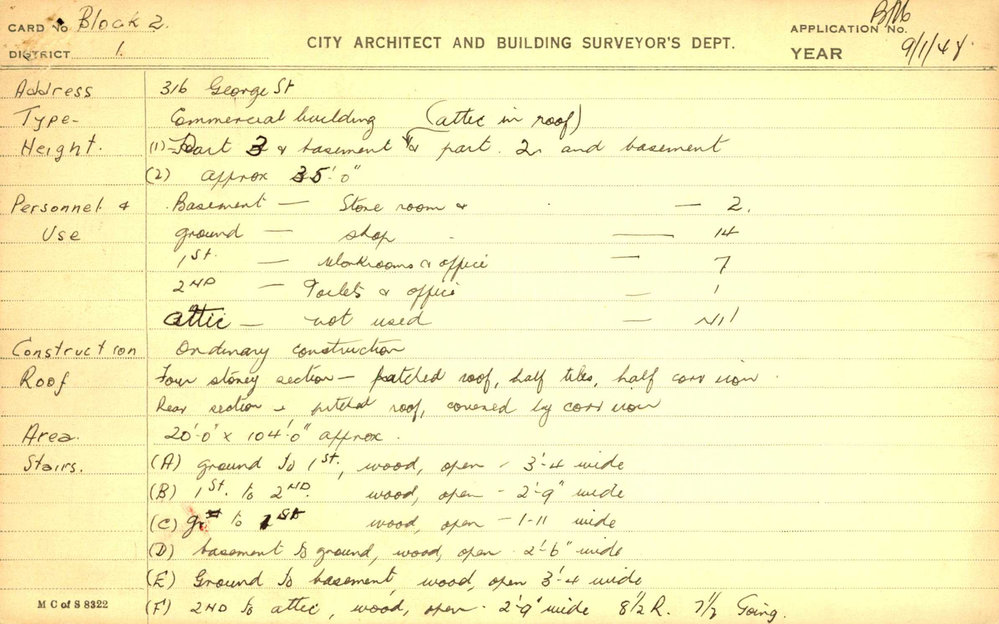 CARD No. Block 2.
DISTRICT 1.
CITY ARCHITECT AND BUILDING SURVEYOR'S DEPT.
APPLICATION No.
YEAR 9/1/44
Address 316 George St
Type- Commercial building (attic in roof)
Height. (1) Part 3 & basement & part 2 and basement
(2) approx 35'-0"
Personnel & Basement — Store room & — 2.
Use ground — shop — 14
1st. — Workrooms & office — 7
2ND — Toilets & office — 1
attic — not used — Nil
Construction Ordinary construction
Roof Four storey section — pitched roof, half tiles, half corr iron
Rear section - pitched roof, covered by corr iron
Area. 20'-0" x 104'-0" approx.
Stairs. (A) ground to 1st, wood, open - 3'-4 wide
(B) 1st. to 2ND. wood, open - 2'-9" wide
(C) to 1st wood, open - 1-11 wide
(D) basement to ground, wood, open 2'-6" wide
(E) Ground to basement wood, open 3'-4 wide
M C of S 8322 (F) 2ND to attic, wood, open - 2'-9" wide 8½ R. 7½ Going.